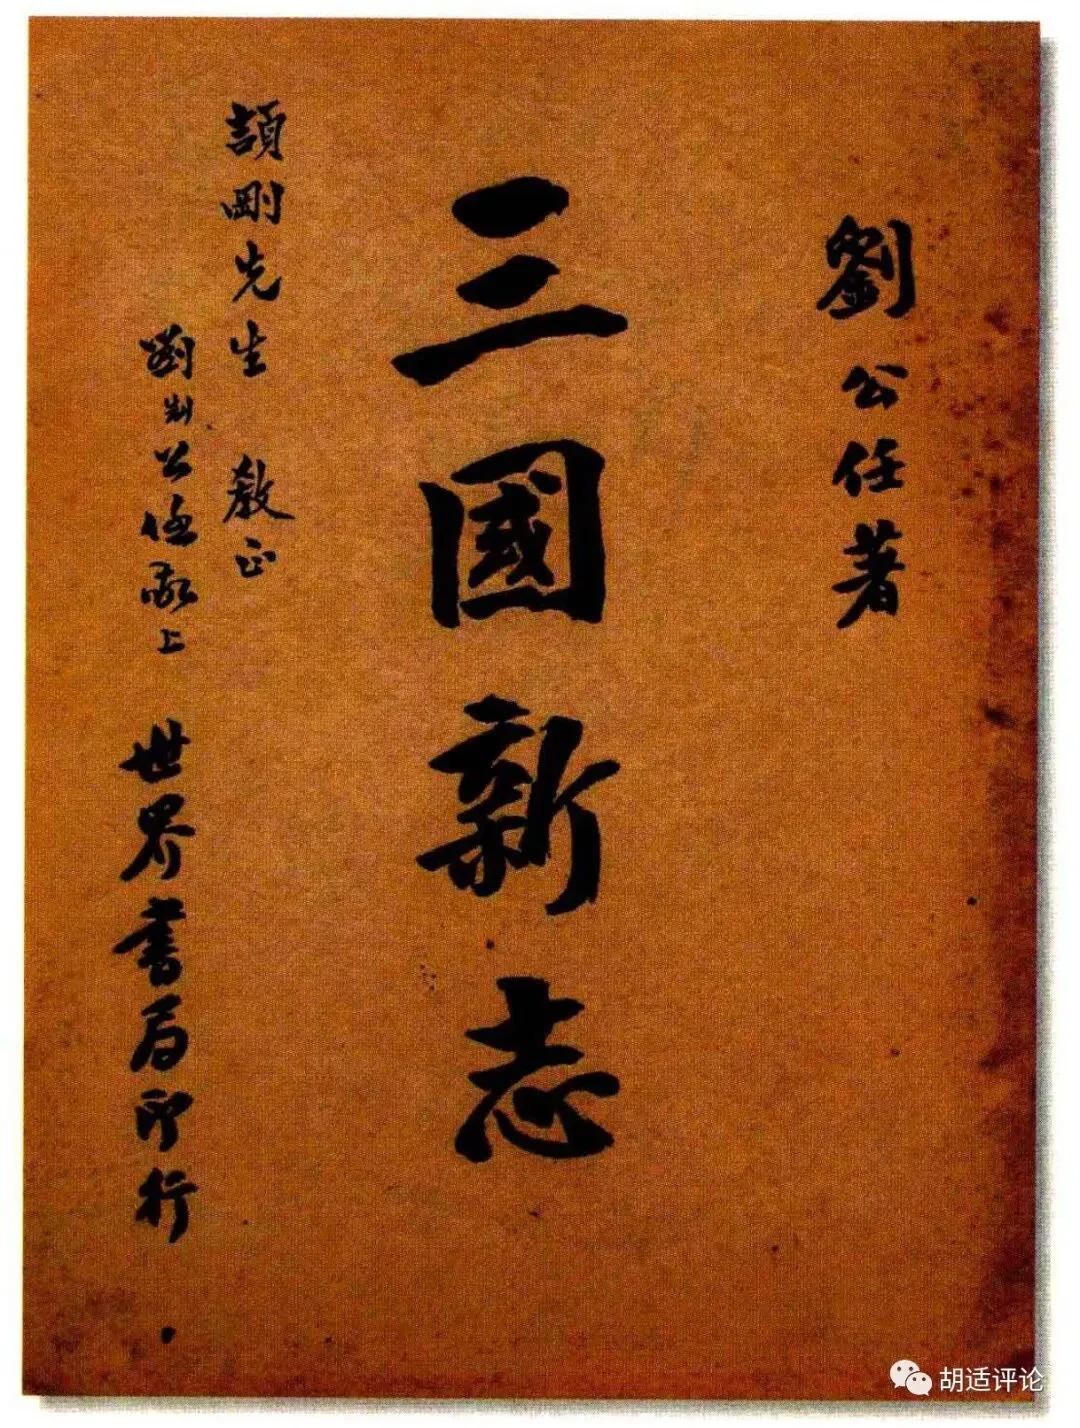 劉公任著
三國新志
頡剛先生 教正
劉制公任敬上
世界書局印行
胡适评论